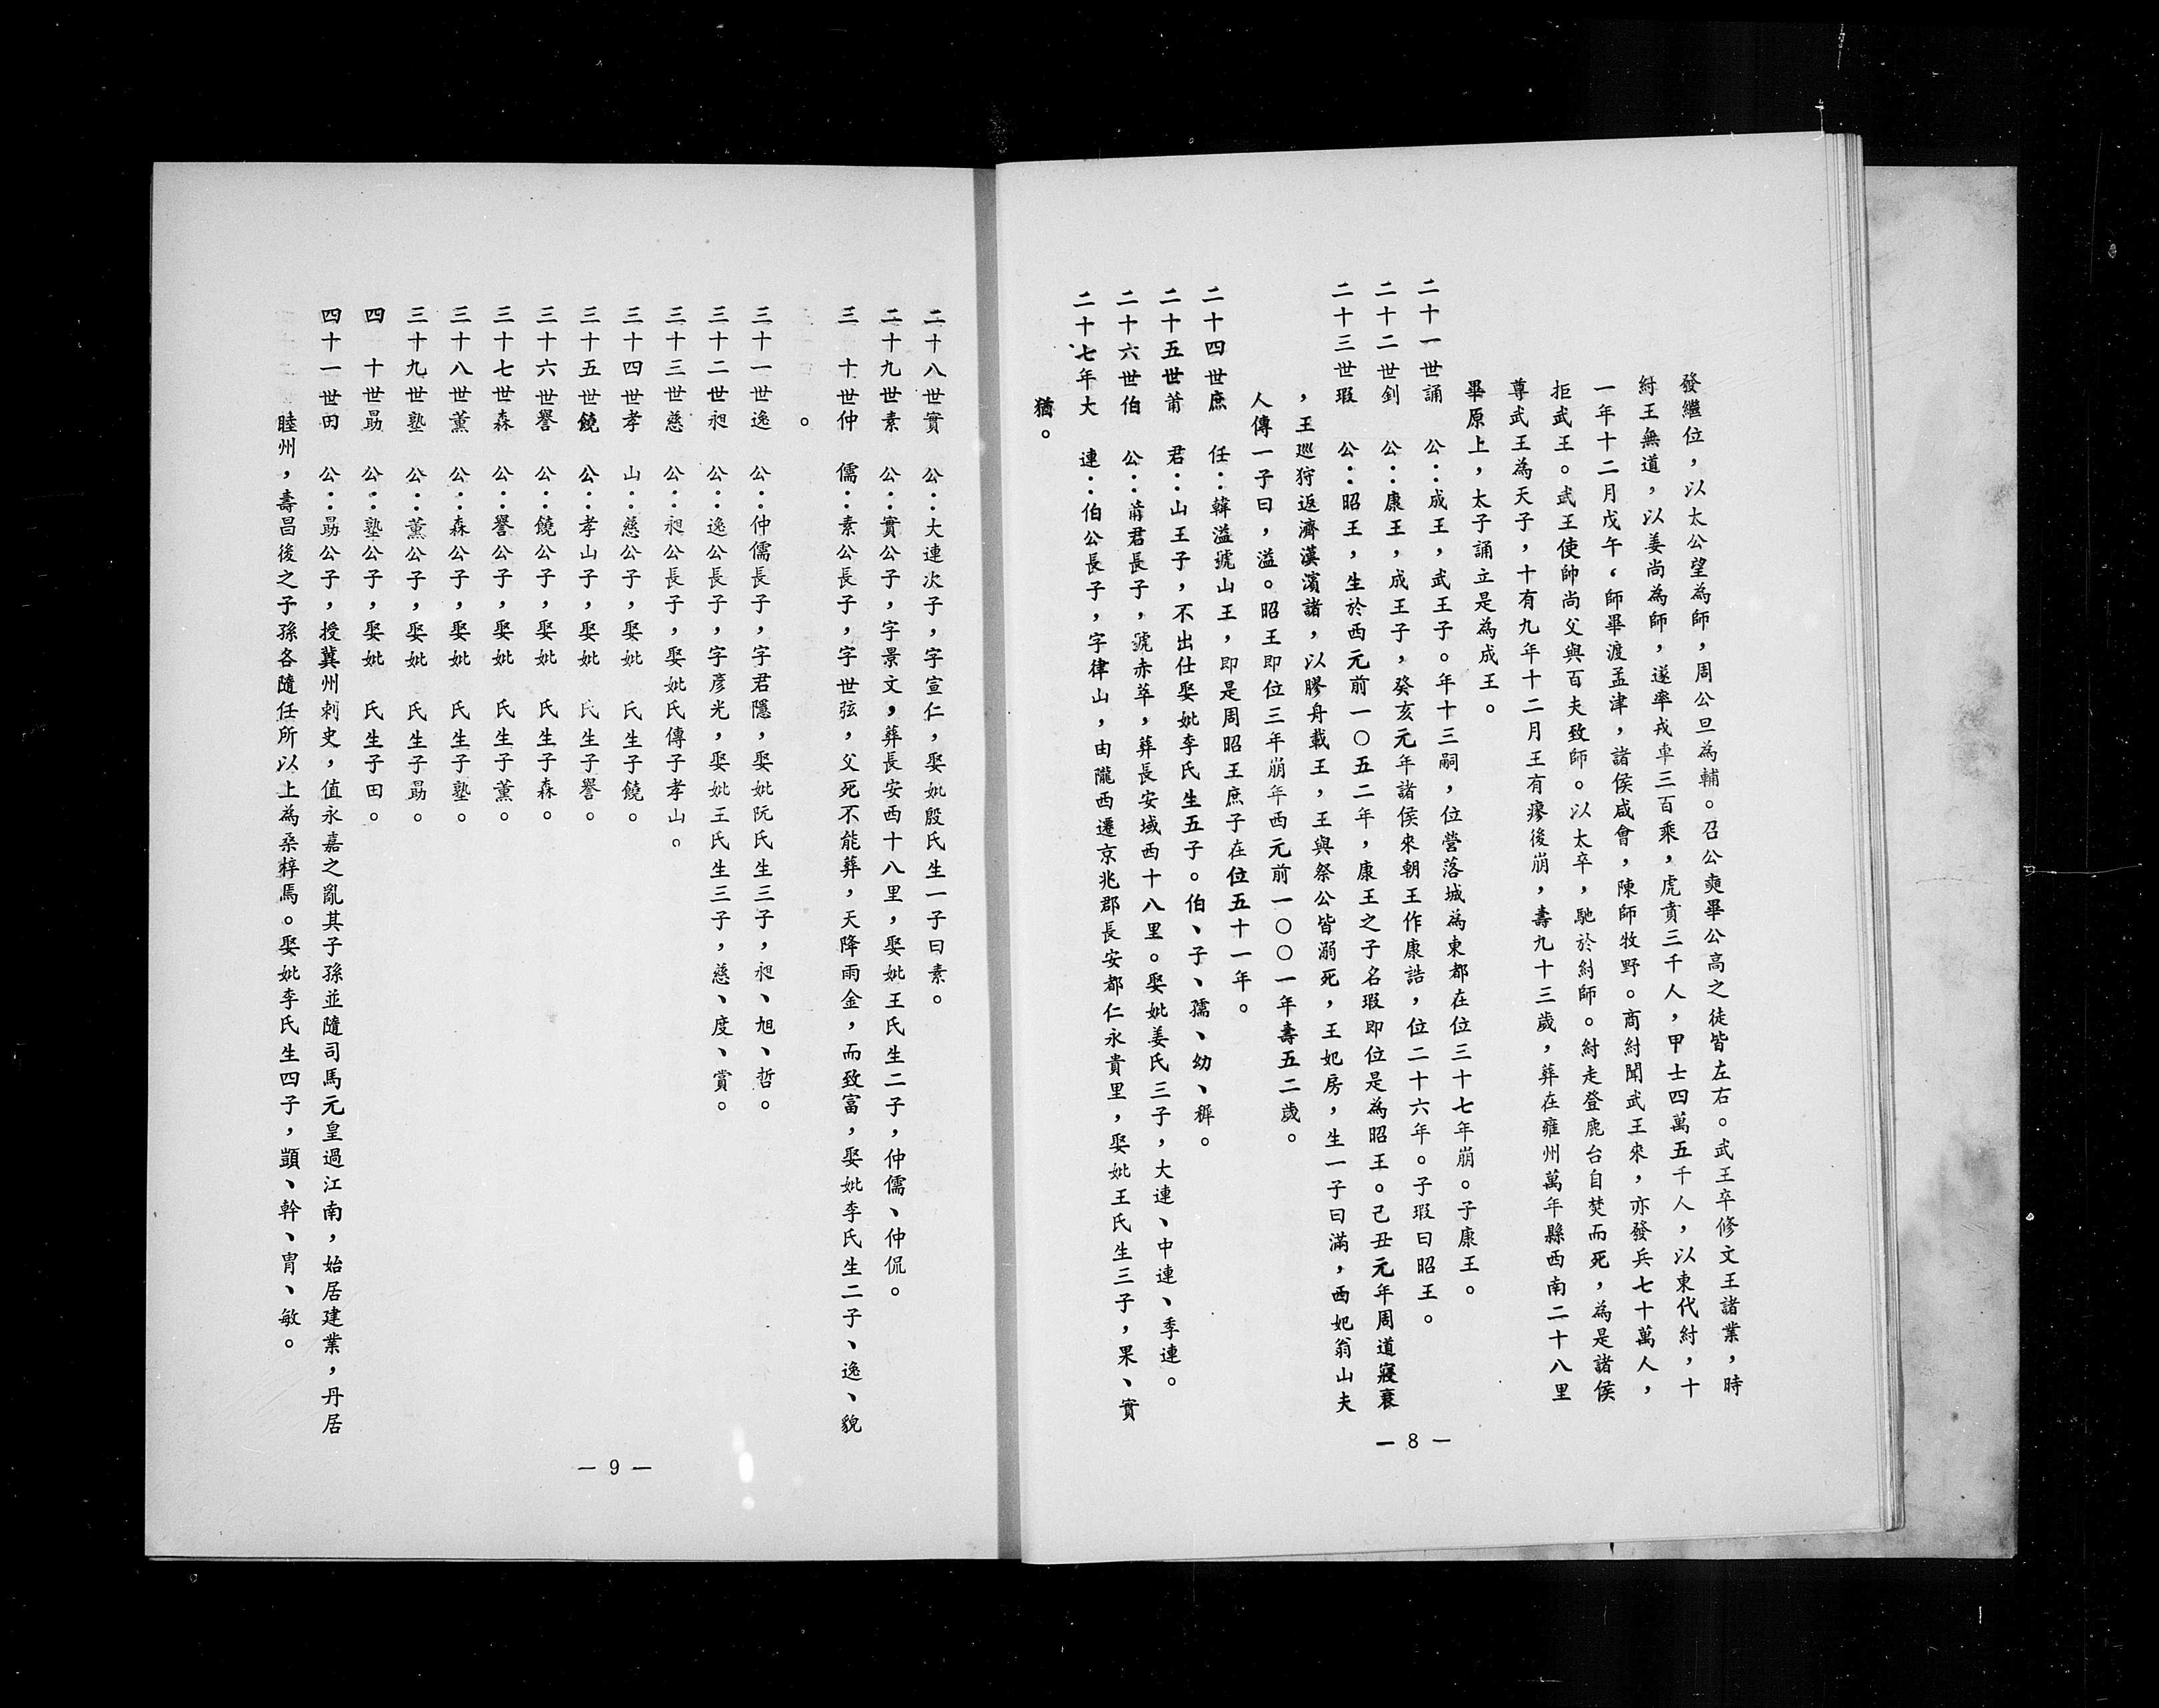 發繼位，以太公望為師，周公旦為輔。召公奭畢公高之徒皆左右。武王卒修文王諸業，時
紂王無道，以姜尚為師，遂率戎車三百乘，虎賁三千人，甲士四萬五千人，以東代紂，十
一年十二月戊午，師畢渡孟津，諸侯咸會，陳師牧野。商紂聞武王來，亦發兵七十萬人，
拒武王。武王使帥尚父與百夫致師。以太卒，馳於紂師。紂走登鹿台自焚而死，為是諸侯
尊武王為天子，十有九年十二月王有瘳後崩，壽九十三歲，葬在雍州萬年縣西南二十八里
畢原上，太子誦立是為成王。
二十一世誦　公：成王，武王子。年十三嗣，位營落城為東都在位三十七年崩。子康王。
二十二世釗　公：康王，成王子，癸亥元年諸侯來朝王作康誥，位二十六年。子瑕曰昭王。
二十三世瑕　公：昭王，生於西元前一〇五二年，康王之子名瑕即位是為昭王。己丑元年周道寢衰
，王巡狩返濟漢濱諸，以膠舟載王，王與祭公皆溺死，王妃房，生一子曰滿，西妃翁山夫
人傳一子曰，溢。昭王即位三年崩年西元前一〇〇一年壽五二歲。
二十四世庶　任：韓溢號山王，即是周昭王庶子在位五十一年。
二十五世莆　君：山王子，不出仕娶妣李氏生五子。伯、子、孺、幼、穉。
二十六世伯　公：莆君長子，號赤萃，葬長安域西十八里。娶妣姜氏三子，大連、中連、季連。
二十七年大　連：伯公長子，字律山，由隴西遷京兆郡長安都仁永貴里，娶妣王氏生三子，果、實
猶。
— 8 —
二十八世實　公：大連次子，字宣仁，娶妣殷氏生一子曰素。
二十九世素　公：實公子，字景文，葬長安西十八里，娶妣王氏生二子，仲儒、仲侃。
三　十世仲　儒：素公長子，字世弦，父死不能葬，天降雨金，而致富，娶妣李氏生二子、逸、貌
。
三十一世逸　公：仲儒長子，字君隱，娶妣阮氏生三子，昶、旭、哲。
三十二世昶　公：逸公長子，字彥光，娶妣王氏生三子，慈、度、賞。
三十三世慈　公：昶公長子，娶妣氏傳子孝山。
三十四世孝　山：慈公子，娶妣　氏生子饒。
三十五世饒　公：孝山子，娶妣　氏生子譽。
三十六世譽　公：饒公子，娶妣　氏生子森。
三十七世森　公：譽公子，娶妣　氏生子薰。
三十八世薰　公：森公子，娶妣　氏生子塾。
三十九世塾　公：薰公子，娶妣　氏生子勗。
四　十世勗　公：塾公子，娶妣　氏生子田。
四十一世田　公：勗公子，授冀州刺史，值永嘉之亂其子孫並隨司馬元皇過江南，始居建業，丹居
睦州，壽昌後之子孫各隨任所以上為桑梓馬。娶妣李氏生四子，顗、幹、胄、敏。
— 9 —